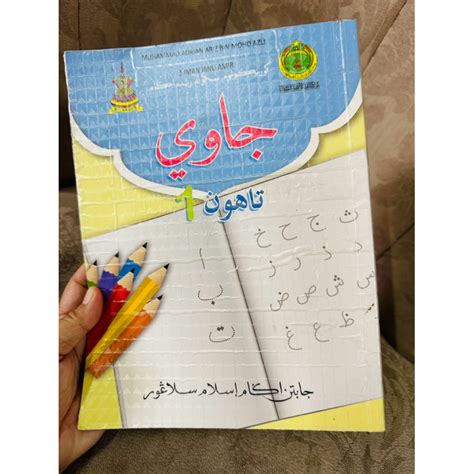 MUHAMMAD ADRIAN ARIZ BIN MOHD AZLI
1 IMAN IBNU AMIR
جاوي
تاهون 1
ث ج ح خ
د ذ ر ز
س ش ص ض
ظ ع غ
ا
ب
ت
جابتن اݢام اسلام سلاڠور